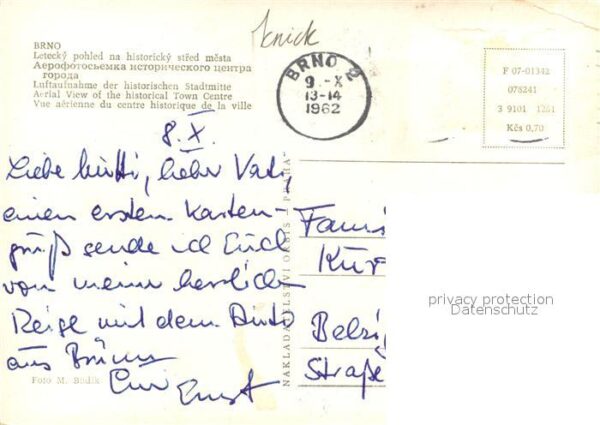 Knick
BRNO
Letecký pohled na historický střed města
Аэрофотосъемка исторического центра
города
Luftaufnahme der historischen Stadtmitte
Aerial View of the historical Town Centre
Vue aérienne du centre historique de la ville
BRNO 2
9.-X
13-14
1962
F 07-01342
078241
3 9101 1261
Kčs 0,70
8.X.
Liebe Mutti, lieber Vati,
einen ersten Karten-
gruß sende ich Euch
von meiner herrlichen
Reise mit dem Auto
aus Brünn
Euer Ernst
Foto M. Budík
NAKLADATELSTVÍ ORBIS — PRAHA
Fami
Kür
Belzi
Straße
privacy protection
Datenschutz